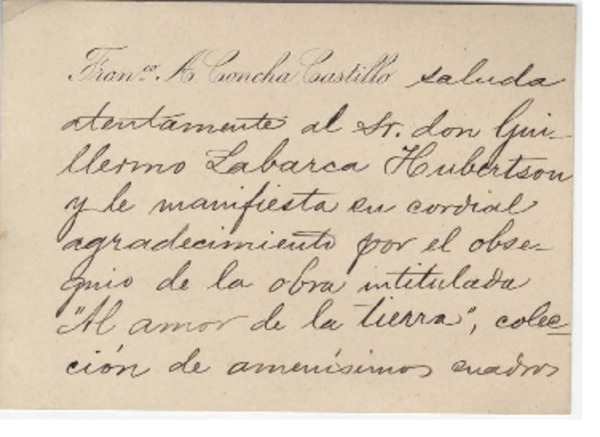 Fran.co A Concha Castillo saluda
atentamente al Sr. don Gui-
llermo Labarca Hubertson
y le manifiesta su cordial
agradecimiento por el obse-
quio de la obra intitulada
"Al amor de la tierra", colec-
ción de amenísimos cuadros